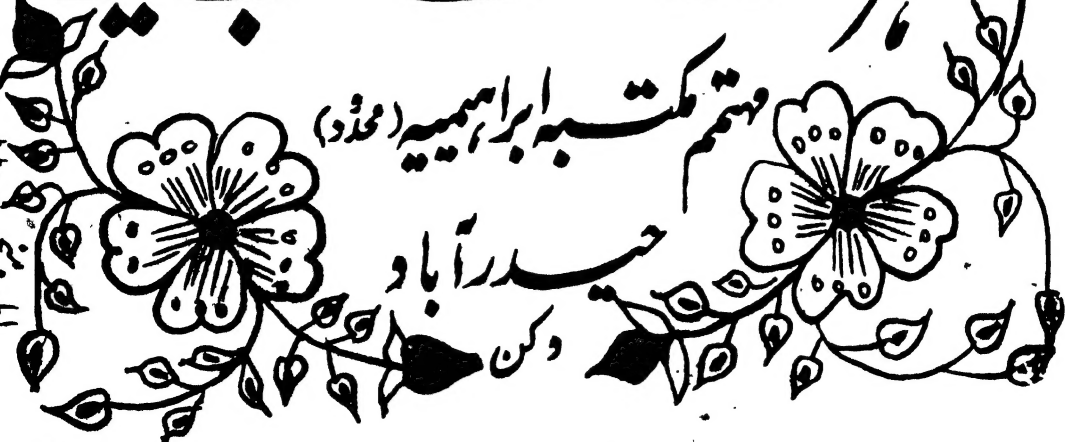 مہتمم مکتبہ ابراہیمیہ (محدود)
حیدرآباد
دکن